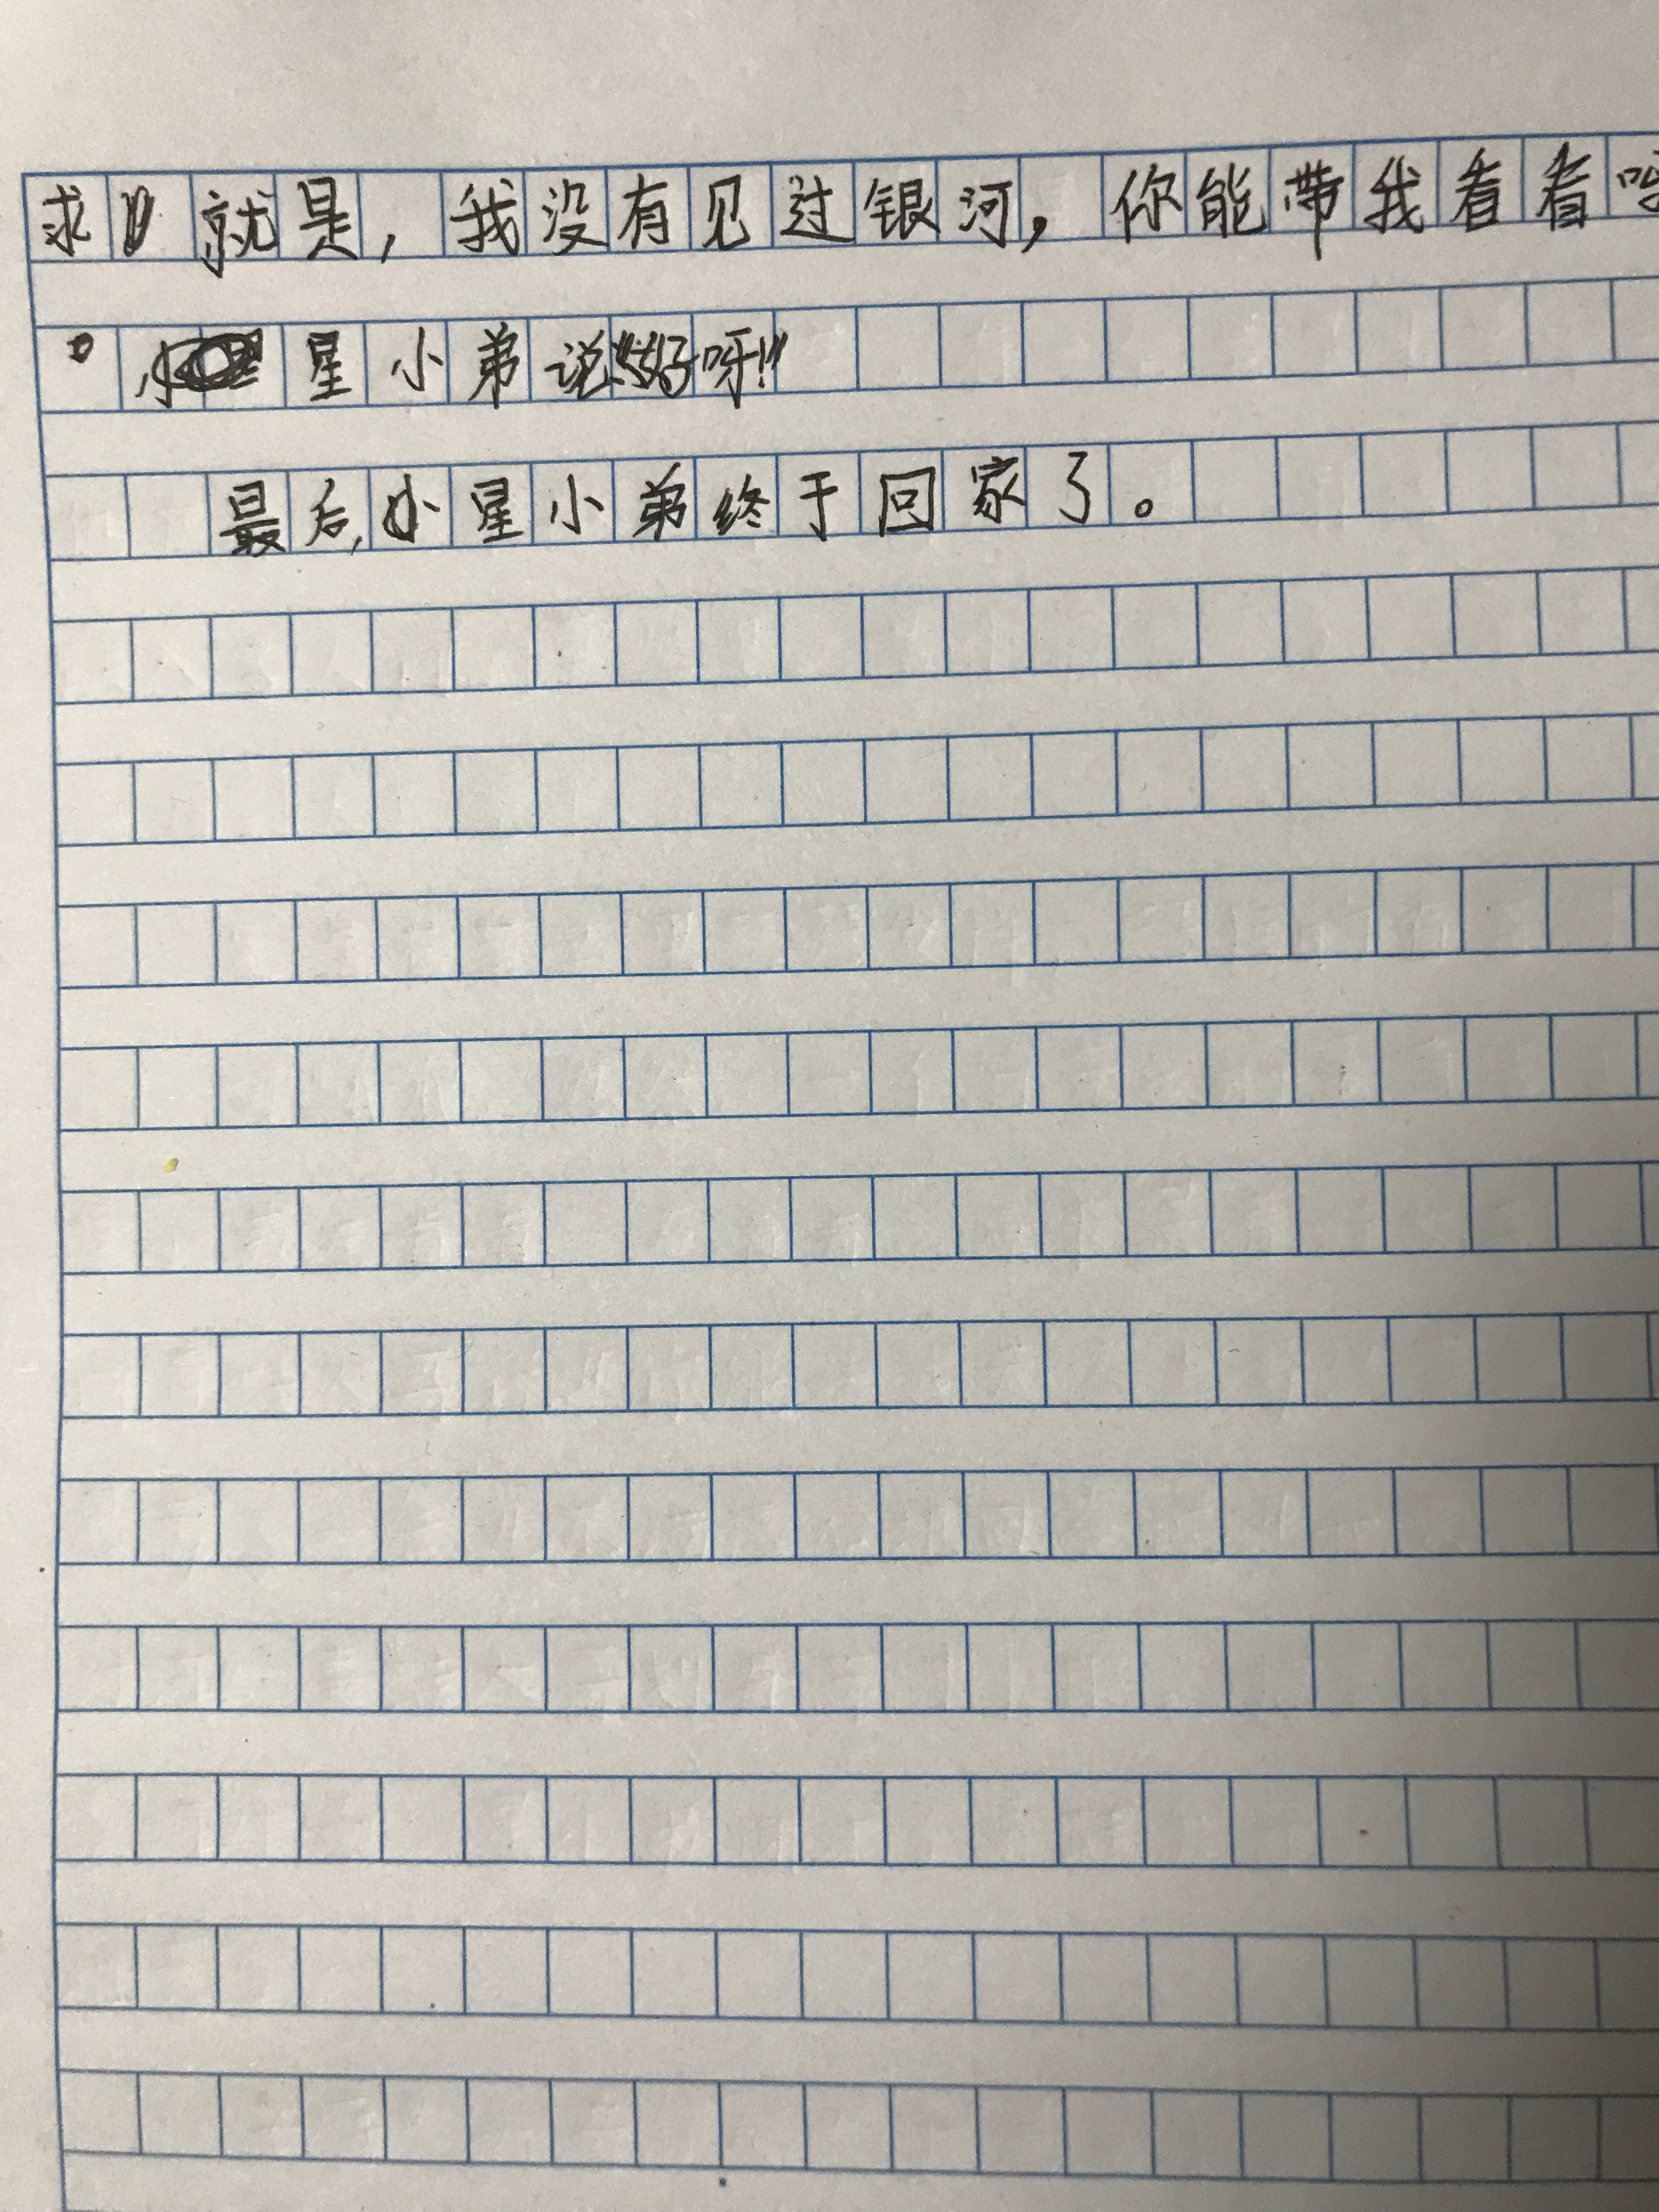 求就是，我没有见过银河，你能带我看看
。星小弟说：“好呀！”
最后，小星小弟终于回家了。